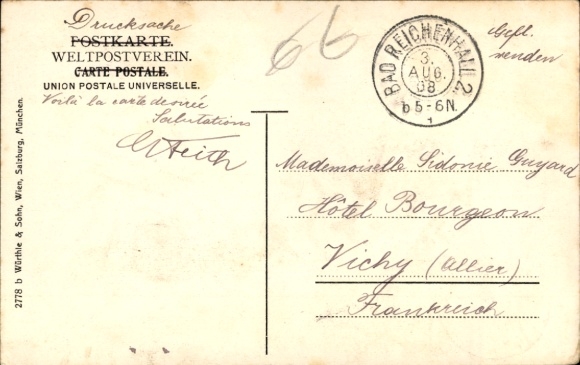 Drucksache
POSTKARTE.
WELTPOSTVEREIN.
CARTE POSTALE.
UNION POSTALE UNIVERSELLE.
Voilà la carte désirée
Salutations
66
BAD REICHENHALL 2
3.
AUG.
08
b 5-6N.
1
Gefl.
wenden
Mademoiselle Sidonie Guyard
Hôtel Bourgeon
Vichy (Allier)
Frankreich
2778 b Würthle & Sohn, Wien, Salzburg, München.